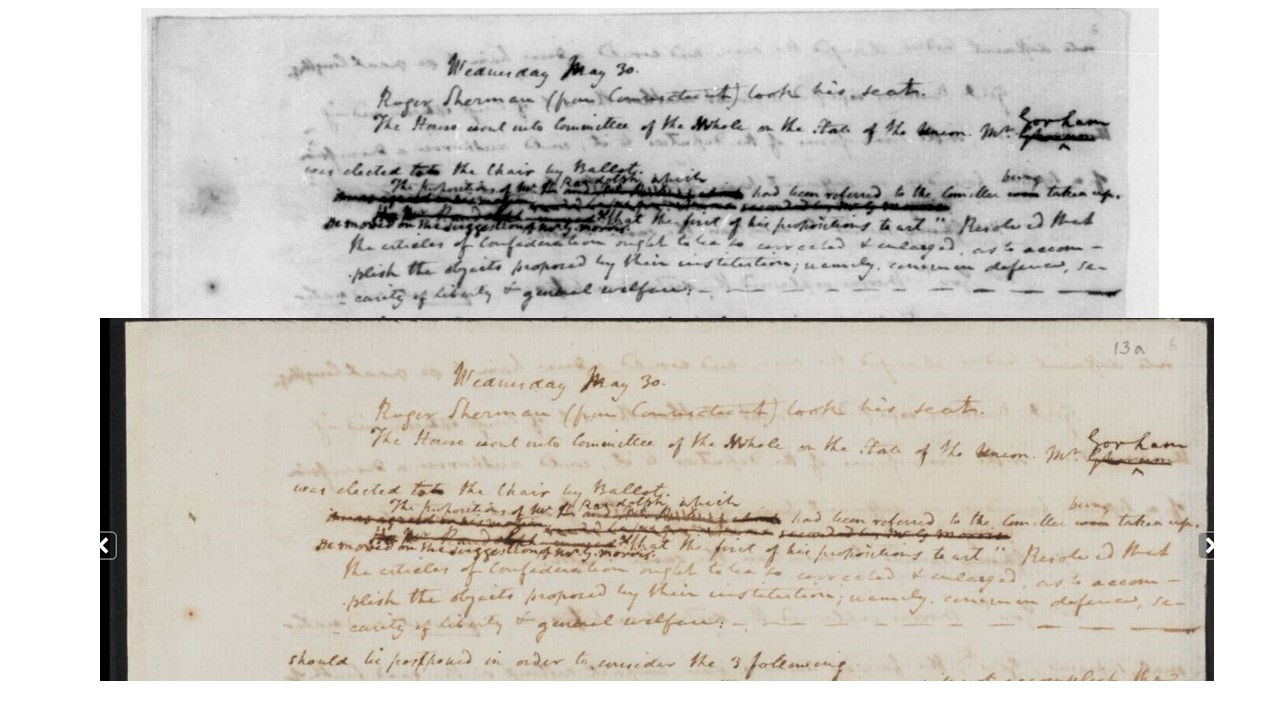 Wednesday May 30.
Roger Sherman (from Connecticut) took his seat.
The House went into Committee of the Whole on the State of the Union. Mr. Gorham
was elected to the Chair by Ballot.
The propositions of Mr. Randolph which had been referred to the Comittee being taken up.
He moved on the suggestion of Mr. G. Morris, that the first of his propositions to wit "Resolved that
the articles of Confederation ought to be so corrected & enlarged, as to accom-
plish the objects proposed by their institution; namely. common defence, se-
curity of liberty & general welfare: — — — — — — —
13a
Wednesday May 30.
Roger Sherman (from Connecticut) took his seat.
The House went into Committee of the Whole on the State of the Union. Mr. Gorham
was elected to the Chair by Ballot.
The propositions of Mr. Randolph which had been referred to the Comittee being taken up.
He moved on the suggestion of Mr. G. Morris, that the first of his propositions to wit "Resolved that
the articles of Confederation ought to be so corrected & enlarged, as to accom-
plish the objects proposed by their institution; namely. common defence, se-
curity of liberty & general welfare: — — — — — — —
should be postponed in order to consider the 3 following
not accomplish the